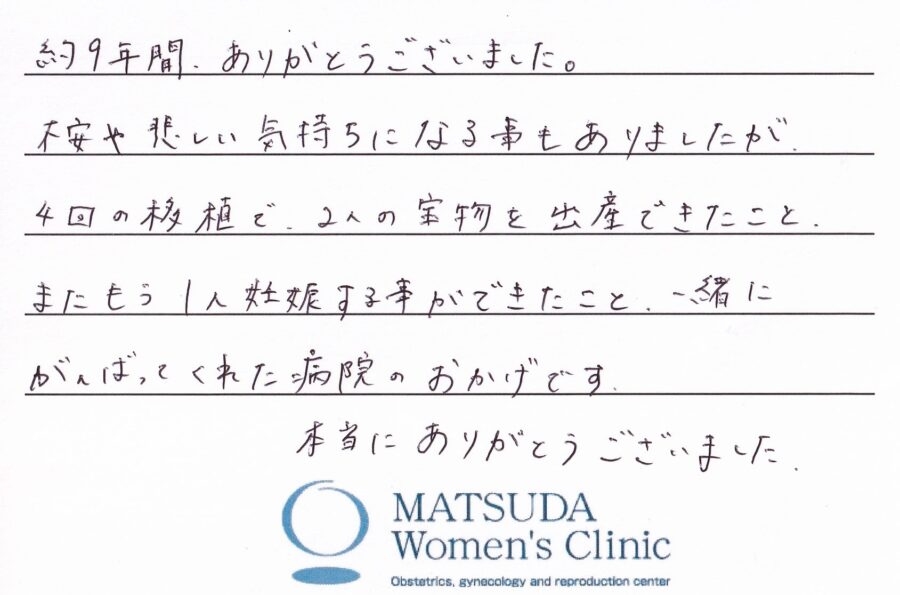 約9年間、ありがとうございました。
不安や悲しい気持ちになる事もありましたが、
4回の移植で、2人の宝物を出産できたこと、
またもう1人妊娠する事ができたこと、一緒に
がんばってくれた病院のおかげです。
本当にありがとうございました。
MATSUDA
Women's Clinic
Obstetrics, gynecology and reproduction center